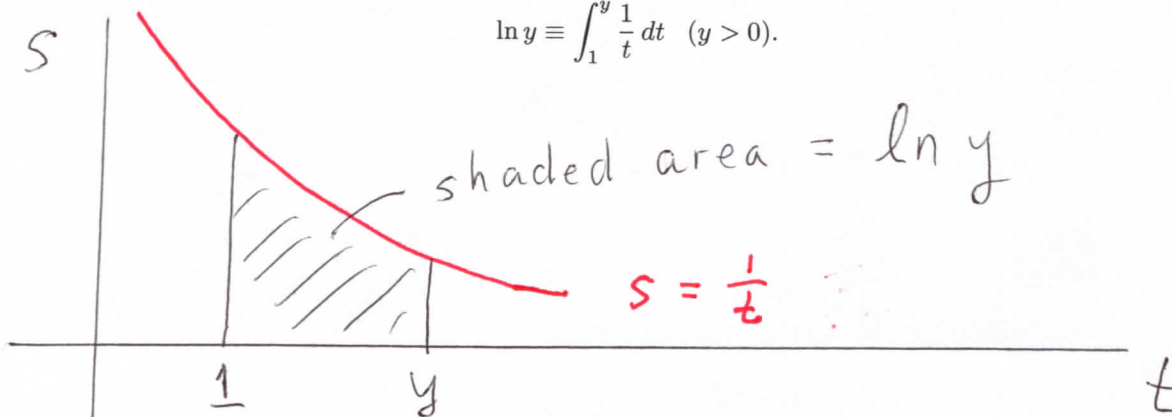 ln y ≡ ∫₁ʸ 1/t dt (y > 0).
S
shaded area = ln y
s = 1/t
1 y
t